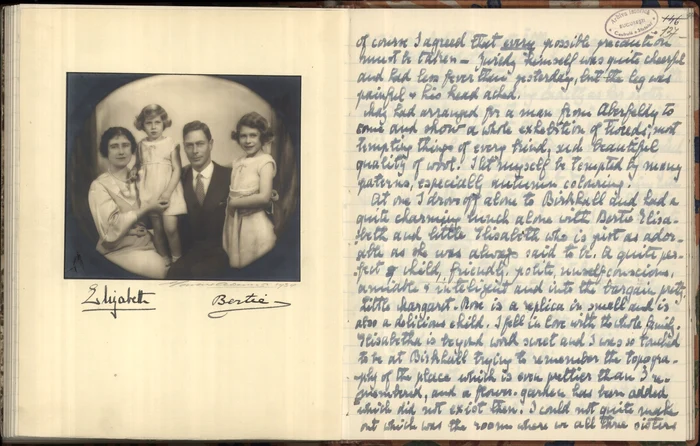 Elizabeth
Bertie
of course I agreed that every possible precaution
must be taken – himself was quite cheerful
and had less fever than yesterday, but the leg was
painful & his head ached.
had arranged for a man from Aberfeldy to
come and show a whole exhibition of tweeds, most
tempting things of every kind, such beautiful
quality of wool! I let myself be tempted by many
paterns, especially autumn colouring.
At one I drove off alone to Birkhall and had a
quite charming lunch alone with Bertie Elisa-
beth and little Elisabeth who is just as ador-
able as she was always said to be. A quite per-
fect child, friendly, polite, unselfconscious,
amiable & inteligent and into the bargain pretty.
Little Margaret-Rose is a replica in small and is
also a delicious child. I fell in love with the whole family.
Elisabetha is beyond words sweet and I was so touched
to be at Birkhall trying to remember the topogra-
phy of the place which is even prettier than I re-
membered, and a flower-garden has been added
which did not exist then. I could not quite make
out which was the room where we all three sisters